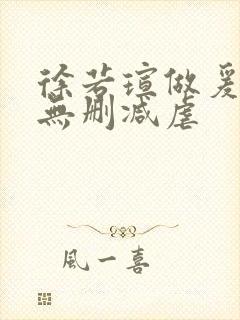 徐若瑄做爰
無删减虐
風一喜